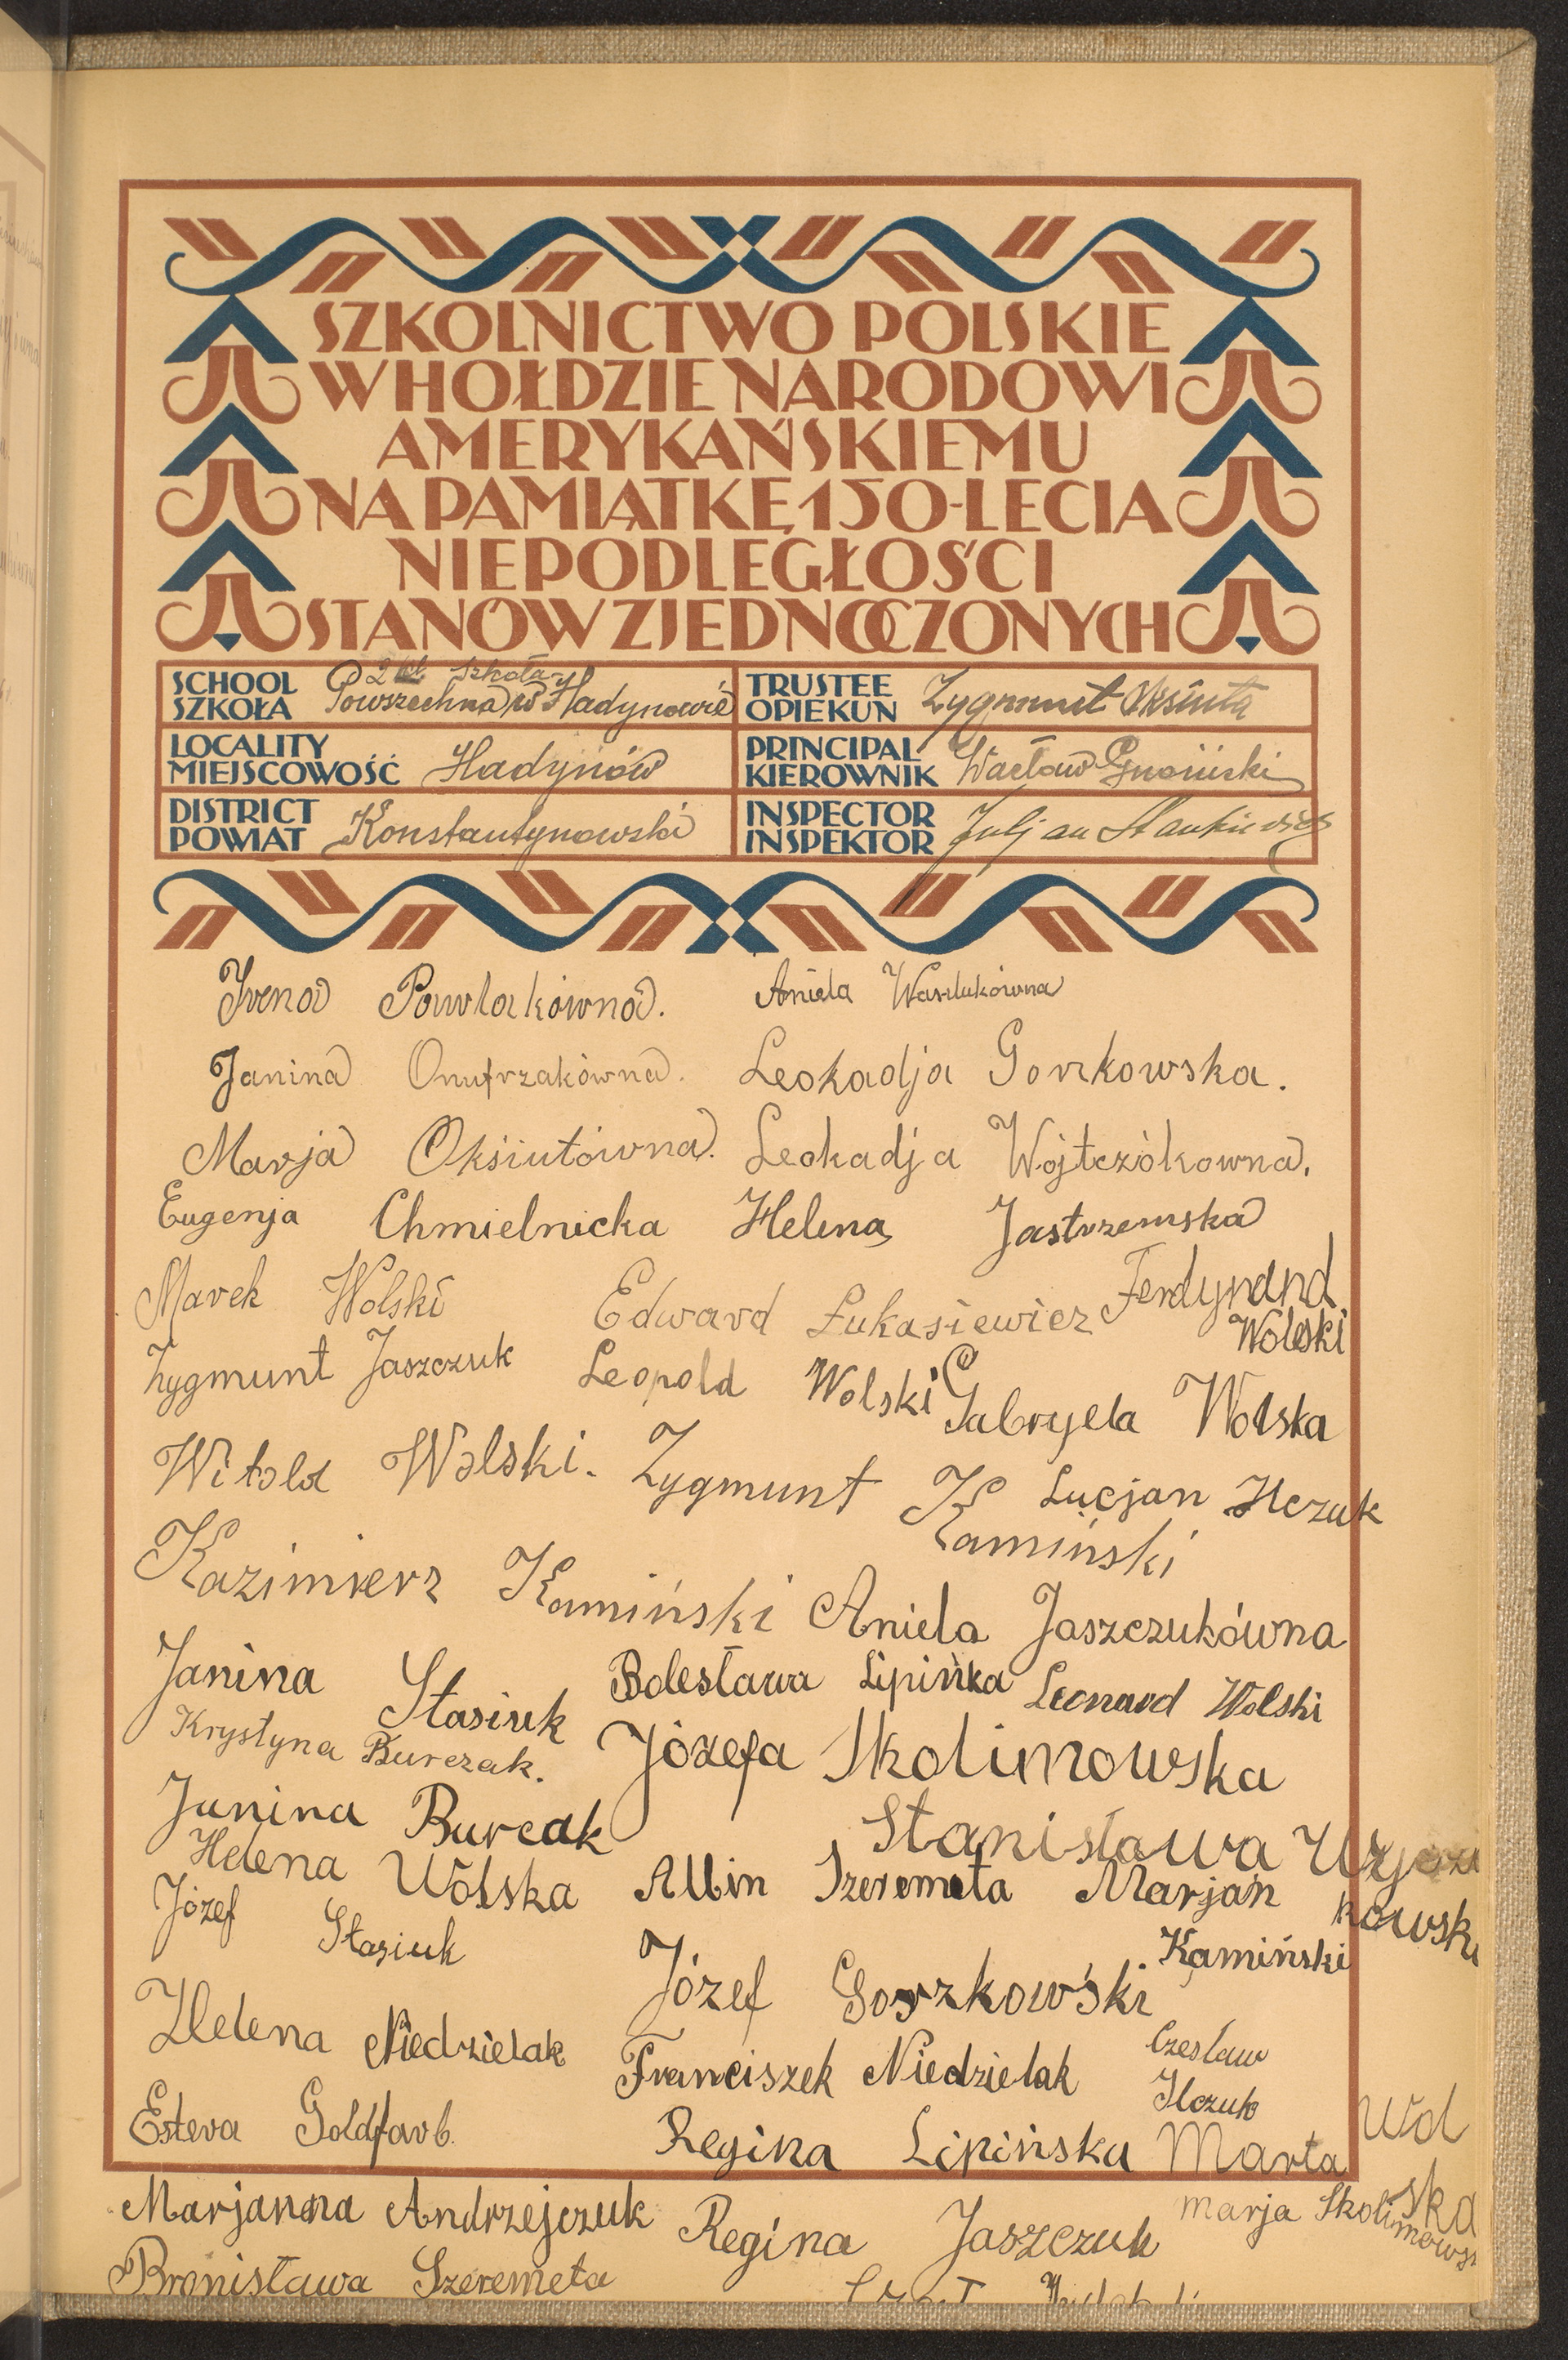 SZKOLNICTWO POLSKIE
W HOŁDZIE NARODOWI
AMERYKAŃSKIEMU
NA PAMIĄTKĘ 150-LECIA
NIEPODLEGŁOŚCI
STANÓW ZJEDNOCZONYCH
SCHOOL
SZKOŁA
2 kl. Szkoła
Powszechna w Hadynowie
TRUSTEE
OPIEKUN
Zygmunt Oksiuta
LOCALITY
MIEJSCOWOŚĆ
Hadynów
PRINCIPAL
KIEROWNIK
Wacław
DISTRICT
POWIAT
Konstantynowski
INSPECTOR
INSPEKTOR
Juljan Stankiewicz
Irena Pawlakówna. Aniela Wasilukówna
Janina Onufrzakówna. Leokadja Gorzkowska.
Marja Oksiutówna. Leokadja Wójtczókowna.
Eugenja Chmielnicka Helena Jastrzemska
Marek Wolski Edward Łukasiewicz Ferdynand
Wolski
Zygmunt Jaszczuk Leopold Wolski Gabryela Wolska
Witold Wolski. Zygmunt Kamiński Lucjan Ilczuk
Kazimierz Kamiński Aniela Jaszczukówna
Janina Stasiuk Bolesława Lipińka Leonard Wolski
Krystyna Burczak. Józefa Skolimowska
Janina Burcak Stanisława
kowsk
Helena Wólska Albin Szeremeta Marjan
Kamiński
Józef Stasiuk Józef Gorzkowśki
Helena Niedzielak Franciszek Niedzielak Czesław
Ilczuk
Estera Goldfarb. Regina Lipińska Marta Wol
ska
Marjanna Andrzejczuk Regina Jaszczuk Marja Skolimows
Bronisława Szeremeta